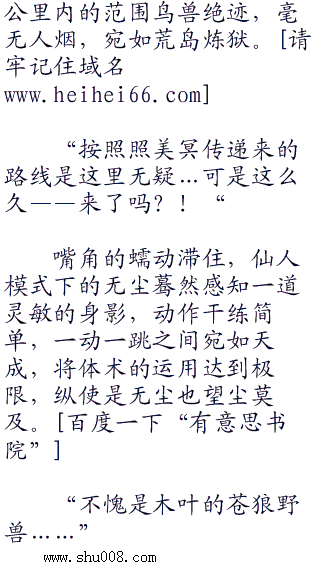 公里内的范围鸟兽绝迹，毫
无人烟，宛如荒岛炼狱。[请
牢记住域名
www.heihei66.com]
“按照照美冥传递来的
路线是这里无疑…可是这么
久——来了吗？！“
嘴角的蠕动滞住，仙人
模式下的无尘蓦然感知一道
灵敏的身影，动作干练简
单，一动一跳之间宛如天
成，将体术的运用达到极
限，纵使是无尘也望尘莫
及。[百度一下“有意思书
院”]
“不愧是木叶的苍狼野
兽……”
www.shu008.com